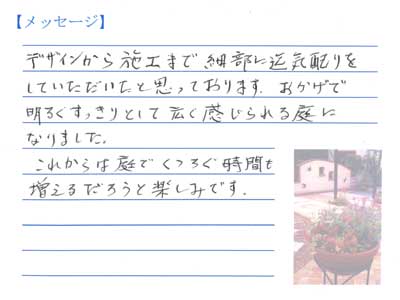 【メッセージ】
デザインから施工まで細部に迄気配りを
していただいたと思っております。おかげで
明るくすっきりとして広く感じられる庭に
なりました。
これからは庭でくつろぐ時間も
増えるだろうと楽しみです。